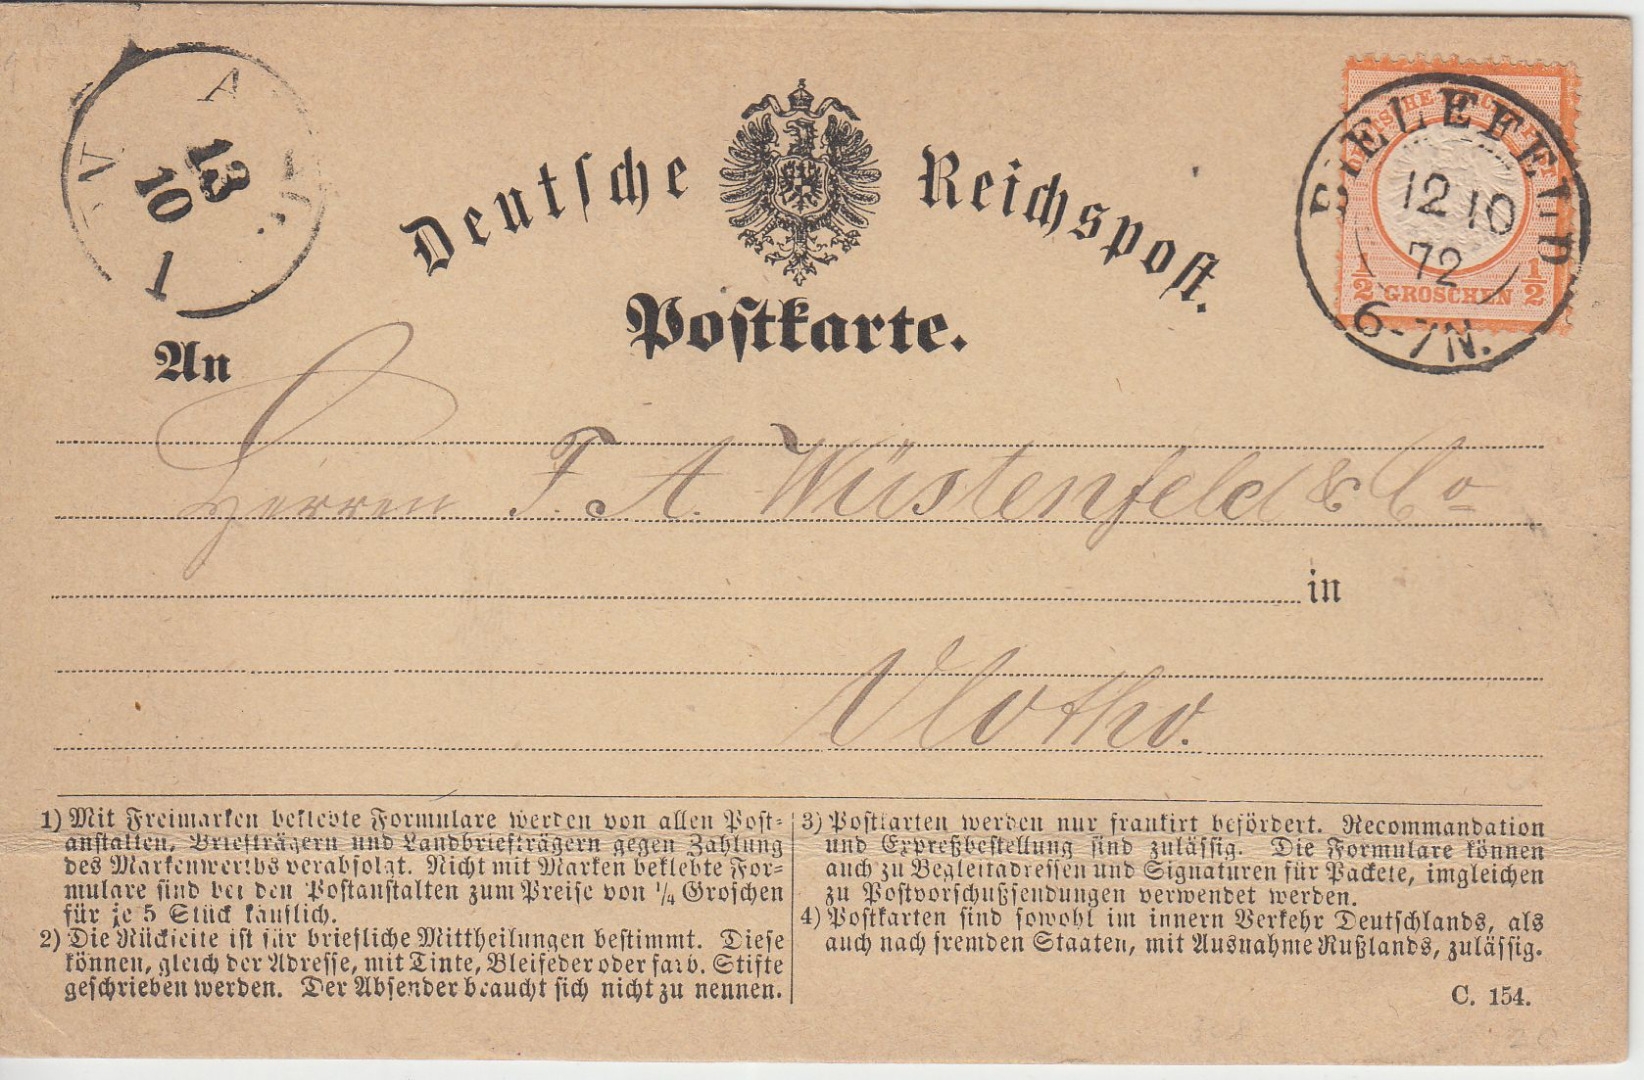 A
13
10
1
Deutsche Reichspost.
Postkarte.
DEUTSCHE REICHS-POST
1/2 GROSCHEN 1/2
BIELEFELD
12 10
72
6-7N.
An
Herren F. A. Wüstenfeld & Co
in
Vlotho.
1) Mit Freimarken beklebte Formulare werden von allen Post-
anstalten, Briefträgern und Landbriefträgern gegen Zahlung
des Markenwerths verabfolgt. Nicht mit Marken beklebte For-
mulare sind bei den Postanstalten zum Preise von 1/4 Groschen
für je 5 Stück käuflich.
2) Die Rückseite ist für briefliche Mittheilungen bestimmt. Diese
können, gleich der Adresse, mit Tinte, Bleifeder oder farb. Stifte
geschrieben werden. Der Absender braucht sich nicht zu nennen.
3) Postkarten werden nur frankirt befördert. Recommandation
und Expreßbestellung sind zulässig. Die Formulare können
auch zu Begleitadressen und Signaturen für Packete, imgleichen
zu Postvorschußsendungen verwendet werden.
4) Postkarten sind sowohl im innern Verkehr Deutschlands, als
auch nach fremden Staaten, mit Ausnahme Rußlands, zulässig.
C. 154.